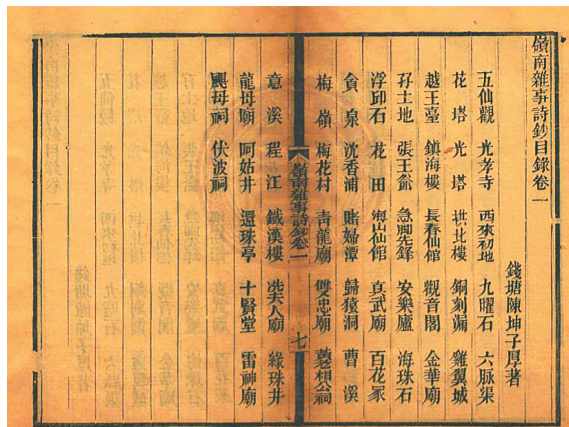 嶺南雜事詩鈔目錄卷一
錢塘陳坤子厚著
五仙觀 光孝寺 西來初地 九曜石 六脉渠
花塔 光塔 拱北樓 銅刻漏 雞翼城
越王臺 鎮海樓 長春仙館 觀音閣 金華廟
孖土地 張王爺 急腳先鋒 安樂廬 海珠石
浮邱石 花田 海山仙館 真武廟 百花冢
貪泉 沈香浦 賭婦潭 歸猿洞 曹溪
梅嶺 梅花村 青龍廟 雙忠廟
嶺南雜事詩鈔卷一 七
意溪 程江 鐵漢樓 冼夫人廟 綠珠井
龍母廟 阿姑井 還珠亭 十賢堂 雷神廟
颶母祠 伏波祠